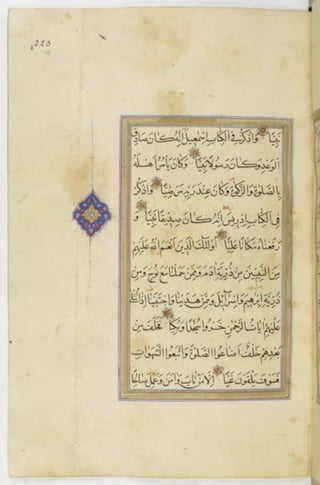 223
نَبِيًّا وَاذْكُرْ فِي الْكِتَابِ اِسْمٰعِيلَ اِنَّهُ كَانَ صَادِقَ
الْوَعْدِ وَكَانَ رَسُولًا نَبِيًّا وَكَانَ يَأْمُرُ اَهْلَهُ
بِالصَّلٰوةِ وَالزَّكٰوةِ وَكَانَ عِنْدَ رَبِّهِ مَرْضِيًّا وَاذْكُرْ
فِي الْكِتَابِ اِدْرِيسَ اِنَّهُ كَانَ صِدِّيقًا نَبِيًّا وَ
رَفَعْنَاهُ مَكَانًا عَلِيًّا اُولٰئِكَ الَّذِينَ اَنْعَمَ اللّٰهُ عَلَيْهِمْ
مِنَ النَّبِيِّينَ مِنْ ذُرِّيَّةِ اٰدَمَ وَمِمَّنْ حَمَلْنَا مَعَ نُوحٍ وَمِنْ
ذُرِّيَّةِ اِبْرٰهِيمَ وَاِسْرَآئِلَ وَمِمَّنْ هَدَيْنَا وَاجْتَبَيْنَا اِذَا تُتْلٰى
عَلَيْهِمْ اٰيَاتُ الرَّحْمٰنِ خَرُّوا سُجَّدًا وَبُكِيًّا فَخَلَفَ مِنْ
بَعْدِهِمْ خَلْفٌ اَضَاعُوا الصَّلٰوةَ وَاتَّبَعُوا الشَّهَوَاتِ
فَسَوْفَ يَلْقَوْنَ غَيًّا اِلَّا مَنْ تَابَ وَاٰمَنَ وَعَمِلَ صَالِحًا